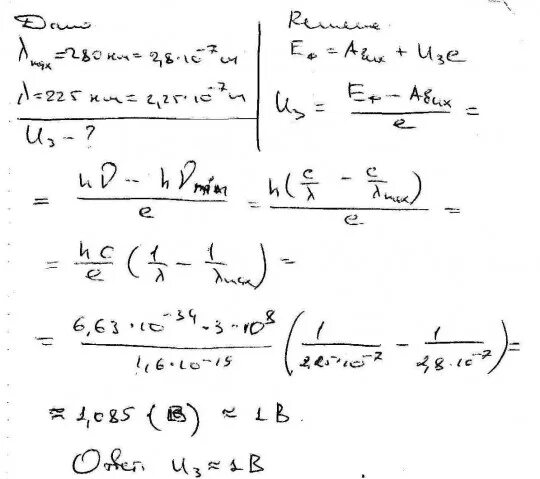 Дано
λmax = 280 нм = 2,8·10⁻⁷ м
λ = 225 нм = 2,25·10⁻⁷ м
Uз - ?
Решение
Eф = Aвых + Uзe
Uз = (Eф - Aвых)/e =
= (hν - hνmin)/e = h(c/λ - c/λmax)/e =
= hc/e (1/λ - 1/λmax) =
= (6,63·10⁻³⁴·3·10⁸)/(1,6·10⁻¹⁹) (1/(2,25·10⁻⁷) - 1/(2,8·10⁻⁷)) =
≈ 1,085 (В) ≈ 1 В.
Ответ Uз ≈ 1 В